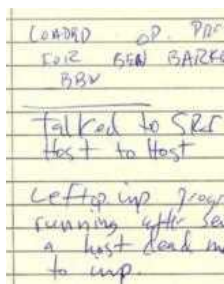 LOADED OP. PRO
FOR BEN BARKE
BBN
Talked to SRI
Host to Host
Left op. imp. progr
running after se
a host dead m
to imp.